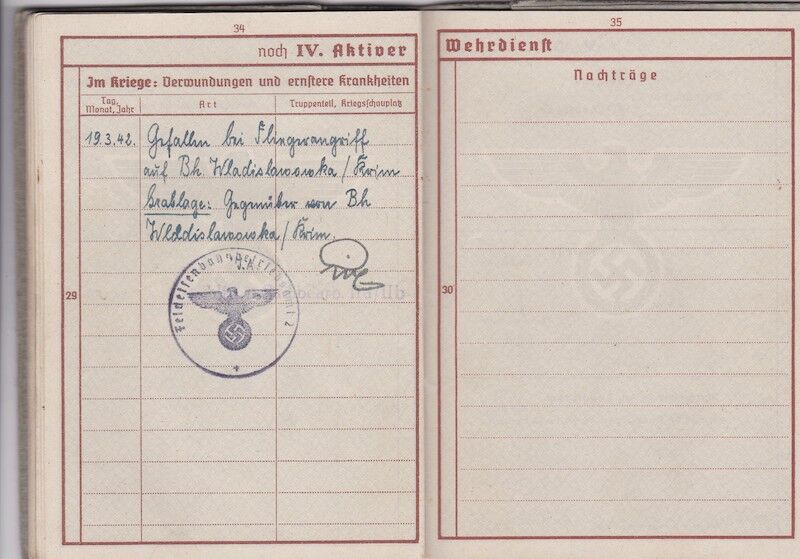 34
noch IV. Aktiver
Im Kriege: Verwundungen und ernstere Krankheiten
Tag, Monat, Jahr
Art
Truppenteil, Kriegsschauplatz
19.3.42. Gefallen bei Fliegerangriff
auf Bh. Wladislawowka / Krim
Grablage: Gegenüber von Bh
Wladislawowka / Krim.
29
35
Wehrdienst
Nachträge
30